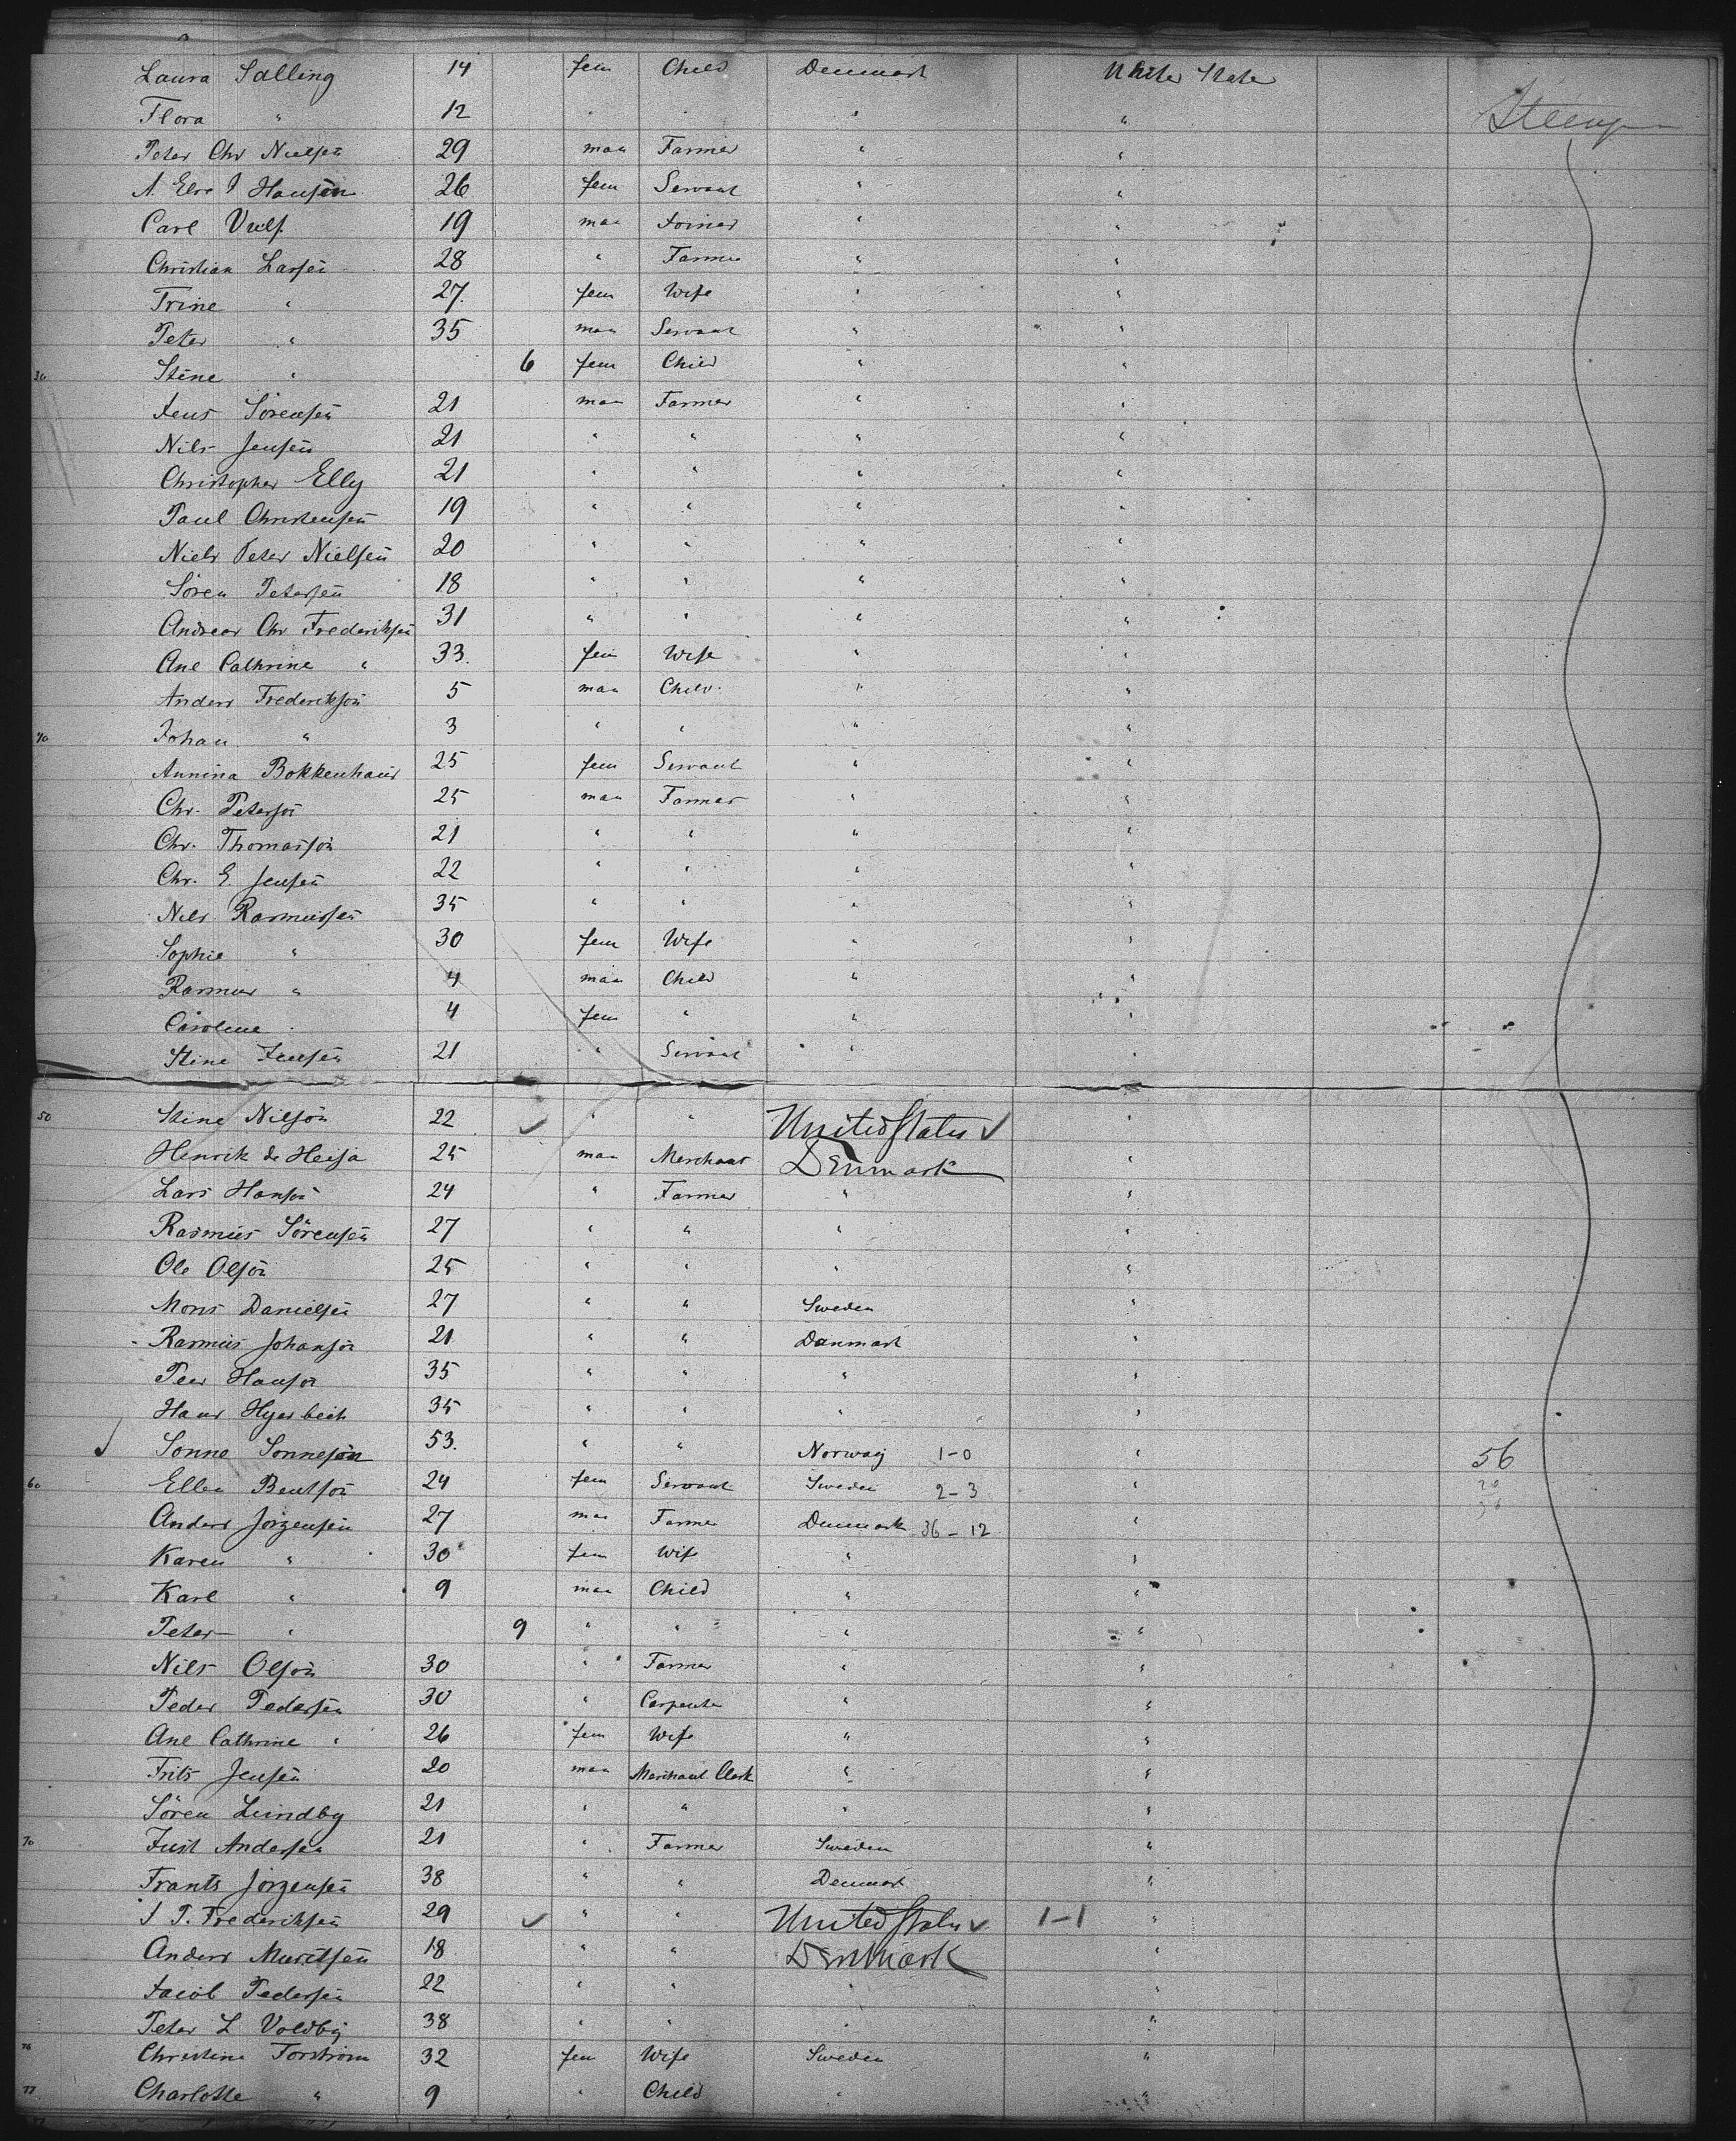 Laura Salling 14 fem Child Denmark United State
Flora " 12 " " " " Steerage
Peter Chr Nielsen 29 man Farmer " "
A. Else J Hansen 26 fem Servant " "
Carl Vulf. 19 man Joiner " "
Christian Larsen 28 " Farmer " "
Trine " 27 fem Wife " "
Peter " 35 man Servant " "
30 Stine " 6 fem Child " "
Jens Sörensen 21 man Farmer " "
Nils Jensen 21 " " " "
Christopher Elly 21 " " " "
Paul Christensen 19 " " " "
Niels Peter Nielsen 20 " " " "
Sören Petersen 18 " " " "
Andreas Chr Frederiksen 31 " " " "
Ane Cathrine " 33. fem Wife " "
Anders Frederiksön 5 man Child. " "
40 Johan " 3 " " " "
Annina Bokkenhaus 25 fem Servant " "
Chr. Petersön 25 man Farmer " "
Chr. Thomassön 21 " " " "
Chr. E. Jensen 22 " " " "
Nils Rasmussen 35 " " " "
Sophie " 30 fem Wife " "
Rasmus " 4 man Child " "
Caroline " 4 fem " " "
Stine Jensen 21 " Servant " "
50 Stine Nilsön 22 ✓ " " United States ✓ "
Henrik de Heisa 25 man Merchant Denmark "
Lars Hansön 24 " Farmer " "
Rasmus Sörensen 27 " " " "
Ole Olsön 25 " " " "
Mons Danielsen 27 " " Sweden "
Rasmus Johansön 21 " " Danmark "
Peer Hansön 35 " " " "
Hans Hyersbech 35 " " " "
Sonne Sonnesön 53. " " Norway 1-0 " 56
60 Ellen Bentsön 24 fem Servant Sweden 2-3 " 20
Anders Jörgensen 27 man Farmer Denmark 36-12 " 36
Karen " 30 fem Wife " "
Karl " 9 man Child " "
Peter " 9 " " " "
Nils Olsön 30 " Farmer " "
Peder Pedersen 30 " Carpenter " "
Ane Cathrine " 26 fem Wife " "
Frits Jensen 20 man Merchant Clerk " "
Sören Lundby 21 " " " "
70 Just Andersen 21 " Farmer Sweden "
Frants Jörgensen 38 " " Denmark "
J P. Frederiksen 29 ✓ " " United States ✓ 1-1 "
Anders Muritsen 18 " " Denmark "
Jacob Pedersen 22 " " " "
Peter L Voldby 38 " " " "
76 Christine Torström 32 fem Wife Sweden "
77 Charlotte " 9 " Child " "